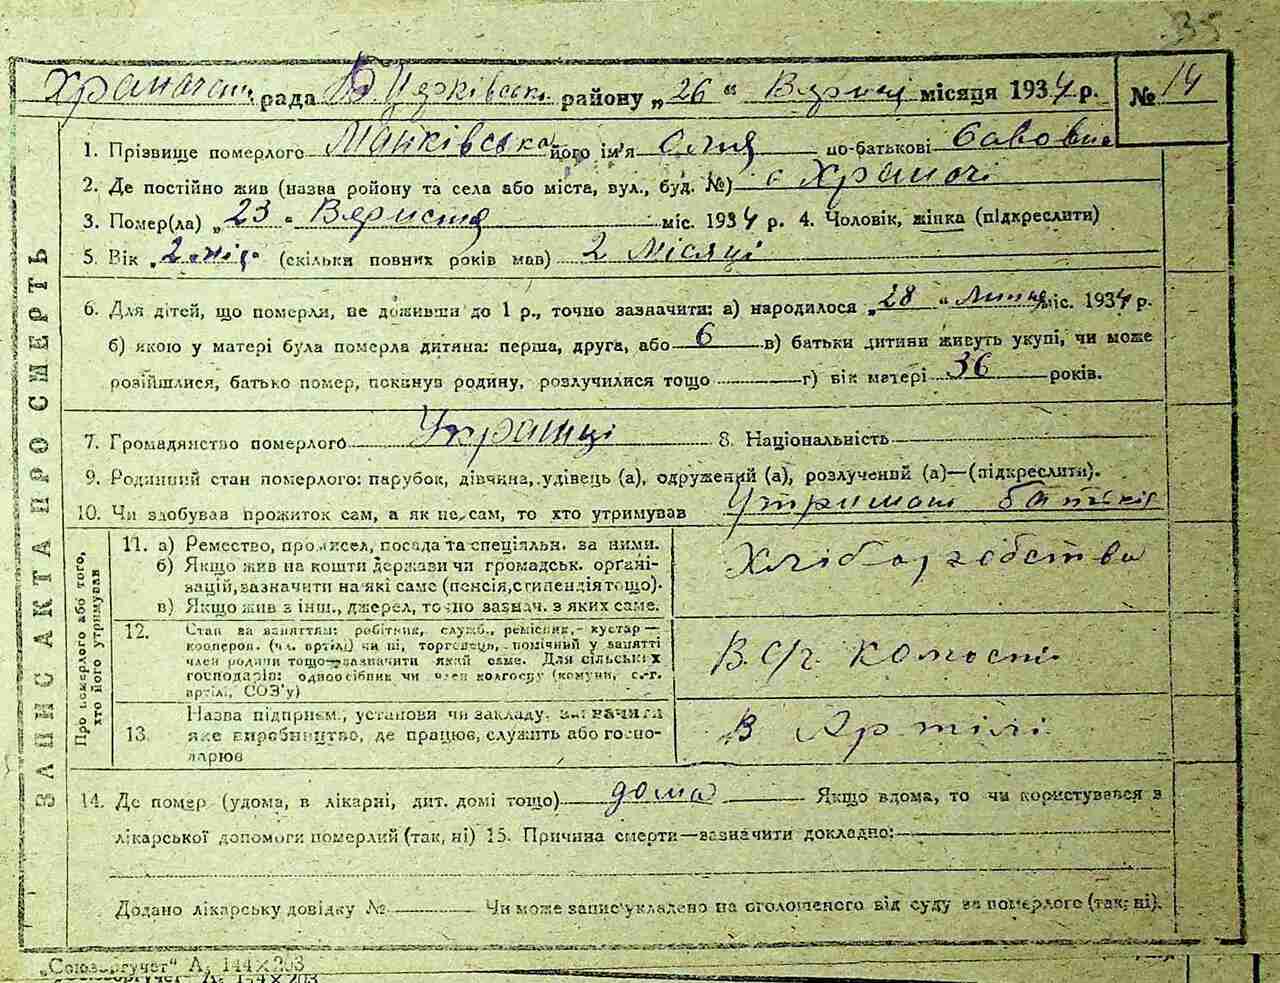 35
Храпачан. рада Б Церківськ. району „26" Вересня місяця 1934 р. № 14
ЗАПИС АКТА ПРО СМЕРТЬ
1. Прізвище померлого Манківська його ім'я Оля по-батькові Савовна
2. Де постійно жив (назва району та села або міста, вул., буд. №) с Храпачі
3. Помер(ла) „23" Вересня міс. 1934 р. 4. Чоловік, жінка (підкреслити)
5. Вік „2 міс" (скільки повних років мав) 2 місяці
6. Для дітей, що померли, не доживши до 1 р., точно зазначити: а) народилося „28" Липня міс. 1934 р.
б) якою у матері була померла дитина: перша, друга, або 6 в) батьки дитини живуть укупі, чи може
розійшлися, батько помер, покинув родину, розлучилися тощо г) вік матері 36 років.
7. Громадянство померлого Українці 8. Національність
9. Родинний стан померлого: парубок, дівчина, удівець (а), одружений (а), розлучений (а)—(підкреслити).
10. Чи здобував прожиток сам, а як не сам, то хто утримував Утриман батьків
Про померлого або того, хто його утримував
11. а) Ремество, промисел, посада та спеціяльн. за ними.
б) Якщо жив на кошти держави чи громадськ. органі-
зацій, зазначити на які саме (пенсія, стипендія тощо).
в) Якщо жив з інш., джерел, точно зазнач. з яких саме.
Хліборобство
12. Стан за заняттям: робітник, служб., ремісник,- кустар—
кооперов. (чл. артілі) чи ні, торговець, помічний у занятті
член родини тощо—зазначити який саме. Для сільськ х
господарів: одноосібник чи член колгоспу (комуни, с.-г.
артілі, СОЗ'у)
В с/г колоспі
13. Назва підприєм., установи чи закладу, визначити
яке виробництво, де працює, служить або госпо-
дарює
в Артілі
14. Де помер (удома, в лікарні, дит. домі тощо) дома Якщо вдома, то чи користувався з
лікарської допомоги померлий (так, ні) 15. Причина смерти—зазначити докладно:
Додано лікарську довідку № Чи може запис укладено на оголошеного від суду за померлого (так, ні).
„Союзоргучет" А₅ 144×203